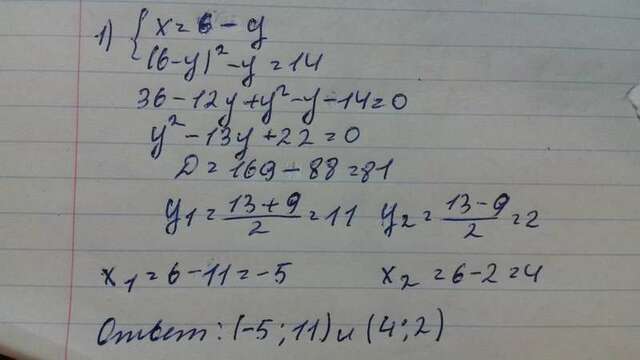 1) { x = 6 - y
(6-y)² - y = 14
36 - 12y + y² - y - 14 = 0
y² - 13y + 22 = 0
D = 169 - 88 = 81
y₁ = (13 + 9)/2 = 11 y₂ = (13 - 9)/2 = 2
x₁ = 6 - 11 = -5 x₂ = 6 - 2 = 4
Ответ: (-5; 11) и (4; 2)